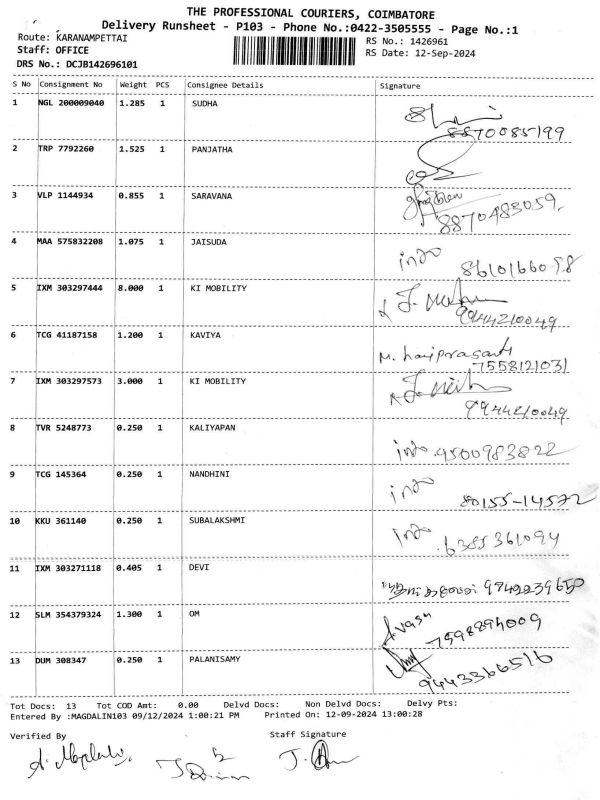 THE PROFESSIONAL COURIERS, COIMBATORE
Delivery Runsheet - P103 - Phone No.:0422-3505555 - Page No.:1
Route: KARANAMPETTAI RS No.: 1426961
Staff: OFFICE RS Date: 12-Sep-2024
DRS No.: DCJB142696101
S No Consignment No Weight PCS Consignee Details Signature
1 NGL 200009040 1.285 1 SUDHA
8870085199
2 TRP 7792260 1.525 1 PANJATHA
3 VLP 1144934 0.855 1 SARAVANA
8870483059.
4 MAA 575832208 1.075 1 JAISUDA
info 8610166098
5 IXM 303297444 8.000 1 KI MOBILITY
9944210049
6 TCG 41187158 1.200 1 KAVIYA
M. hariprasanth
7558121031
7 IXM 303297573 3.000 1 KI MOBILITY
9944210049
8 TVR 5248773 0.250 1 KALIYAPAN
info 9500983822
9 TCG 145364 0.250 1 NANDHINI
info 80155-14572
10 KKU 361140 0.250 1 SUBALAKSHMI
info 6385361094
11 IXM 303271118 0.405 1 DEVI
9842239650
12 SLM 354379324 1.300 1 OM
7598894009
13 DUM 308347 0.250 1 PALANISAMY
9443366516
Tot Docs: 13 Tot COD Amt: 0.00 Delvd Docs: Non Delvd Docs: Delvy Pts:
Entered By :MAGDALIN103 09/12/2024 1:00:21 PM Printed On: 12-09-2024 13:00:28
Verified By Staff Signature